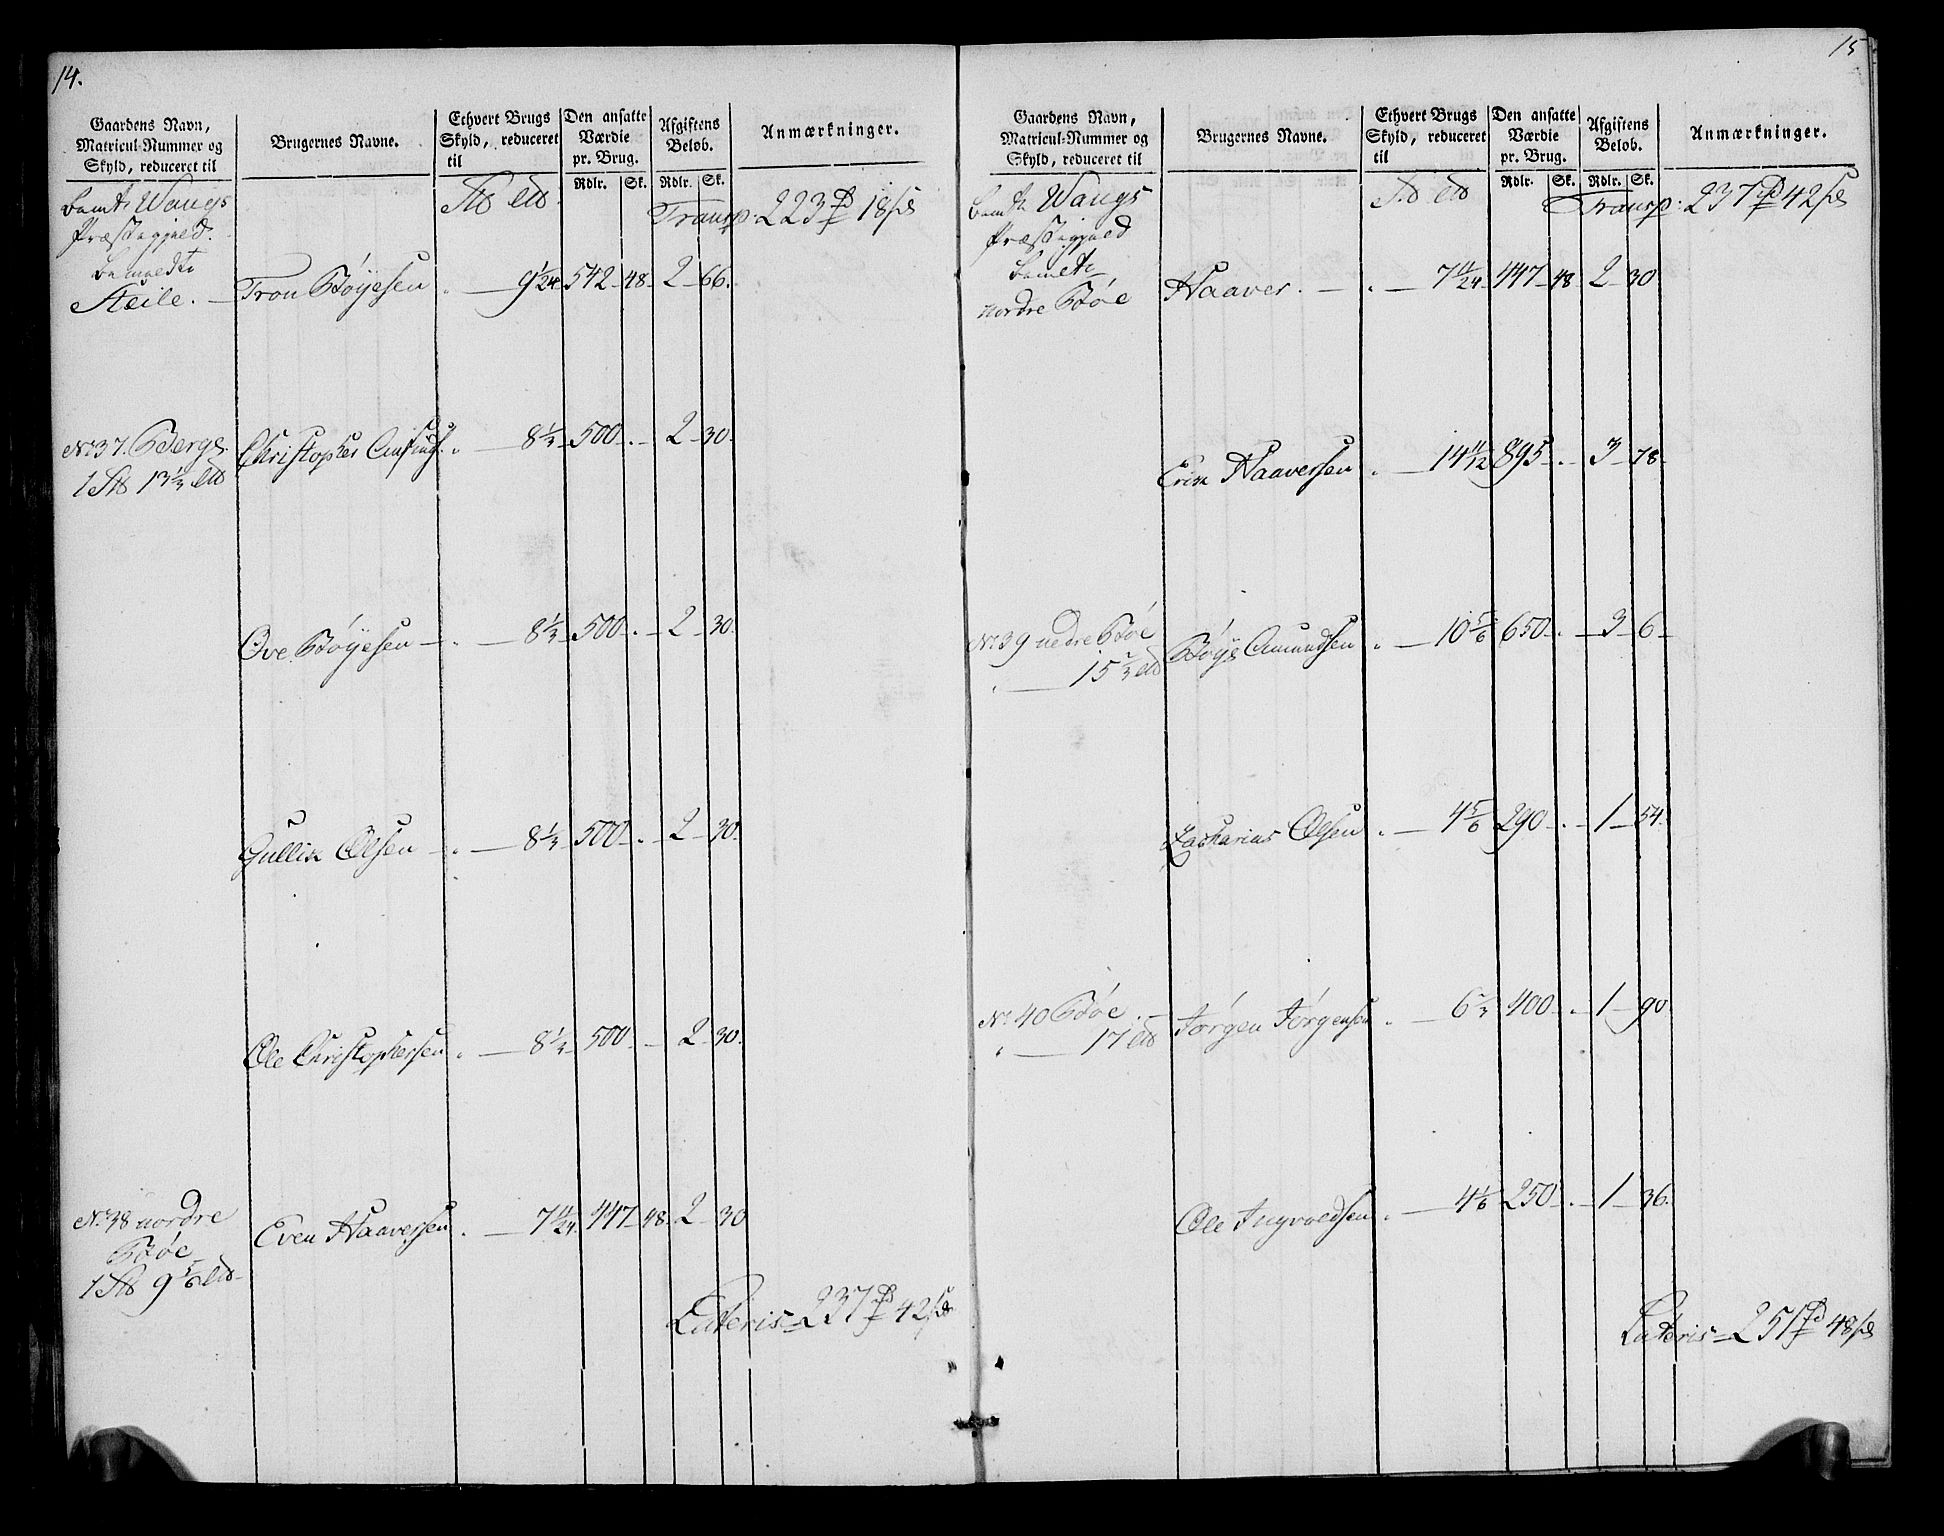 14.
Gaardens Navn, Matricul-Nummer og Skyld, reduceret til
Brugernes Navne.
Ethvert Brugs Skyld, reduceret til
Den ansatte Værdie pr. Brug.
Afgiftens Beløb.
Anmærkninger.
Rdlr. Sk. Rdlr. Sk.
Transp: 223 18
Wangs
Præstegjeld.
Steile. Tron Bøyesen 9 1/24 542 48 2 66.
No 37. Berge Christopher 8 1/3 500 . 2 30.
1 13 1/3
Ove Bøyesen 8 1/3 500 . 2 30.
Gullik Olsen 8 1/3 500 . 2 30.
Ole Christophersen 8 1/3 500 2 30.
No 38 nordre Even Haaversen 7 11/24 447 48. 2 30
Bøe
1 9 5/6
Lateris 237 42
15
Gaardens Navn, Matricul-Nummer og Skyld, reduceret til
Brugernes Navne.
Ethvert Brugs Skyld, reduceret til
Den ansatte Værdie pr. Brug.
Afgiftens Beløb.
Anmærkninger.
Rdlr. Sk. Rdlr. Sk.
Transp: 237 42
Wangs
Præstegjeld
nordre Bøe Haaver 7 11/24 447 48 2 30
Erik Haaversen 14 11/12 895 . 3 78
No 39 nedre Bøe Bøye Amundsen 10 5/6 650 . 3 6
15 2/3
Zacharias Olsen 4 5/6 290 . 1 54.
No 40 Bøe Jørgen Jørgensen 6 2/3 400 . 1 90
17
Ole Ingvoldsen 4 1/6 250 . 1 36.
Lateris 251 48